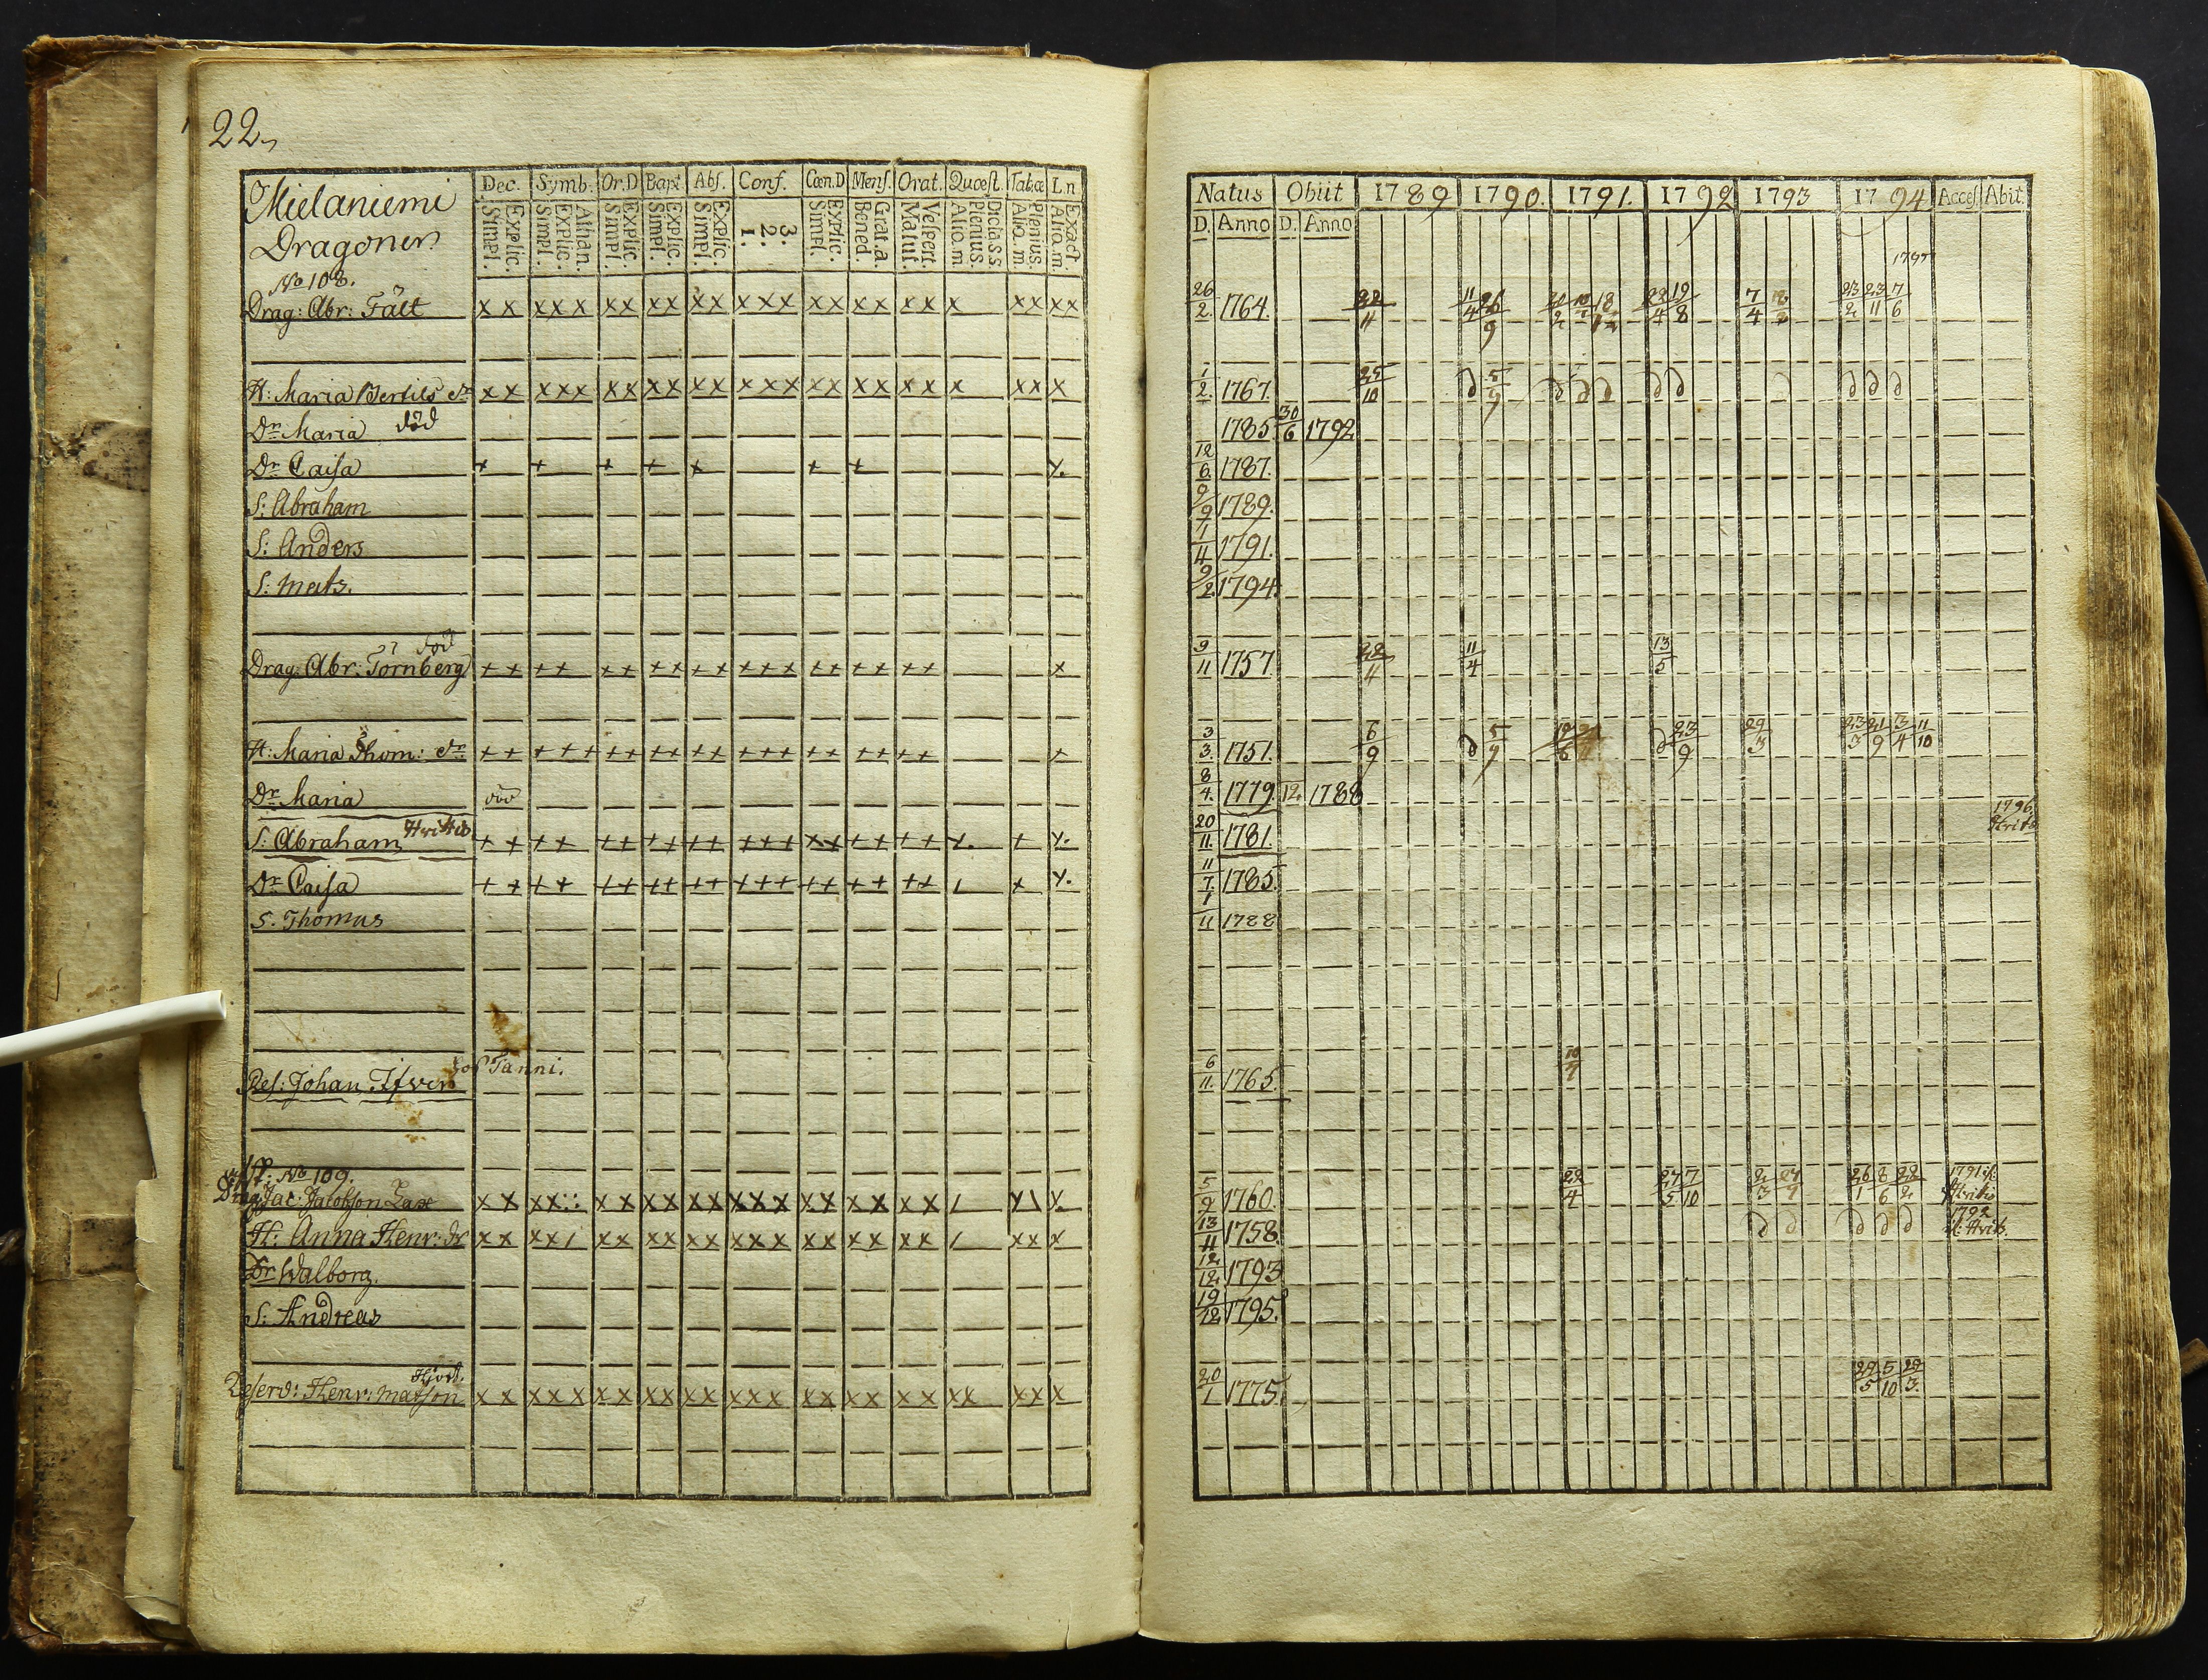 22.
Mielaniemi
Dragoner
Dec. Symb. Or.D Bapt. Abs. Conf. Cœn.D Mens. Orat. Quæst. Tab.œ L.n
Explic. Simpl. Athan. Explic. Simpl. Explic. Simpl. Explic. Simpl. Explic. Simpl. 3. 2. 1. Explic. Simpl. Grat.a. Bened. Vespert. Matut. Dicta.s.s. Plenius. Aliq.m. Plenius. Aliq.m. Exact. Aliq.m.
No 108.
Drag: Abr: Fält x x x x x x x x x x x x x x x x x x x x x x x x x
H: Maria Bertils dr x x x x x x x x x x x x x x x x x x x x x x x x
Dr Maria död
Dr Caisa + + + + x + + x.
S: Abraham
S: Anders
S: Mats.
Drag: Abr: Törnberg död + + + + + + + + + + + + + + + + + + + x
H: Maria Thom: dr + + + + + + + + + + + + + + + + + + + + +
Dr Maria död
S: Abraham + + + + + + + + + + + + + x x + + + + x. + x.
Dr Caisa + + + + + + + + + + + + + + + + + + + / + x.
S. Thomas
Res: Johan
No 109.
Drag Jac: Jacobsson x x x x : : x x x x x x x x x x x x x x x / x \ x.
H: Anna Henr: dr x x x x / x x x x x x x x x x x x x x x / x x x
Dr Walborg.
S: Andreas
Reserv: Henr: Matsson x x x x x x x x x x x x x x x x x x x x x x x x x
Natus Obiit 1789 1790. 1791. 1792 1793 1794 Acces. Abit.
D. Anno D. Anno
1797
26/2. 1764. 22/11 11/4 26/9 22/4 19/8 7/4 23/2 23/11 7/6
1/2. 1767. 25/10 d 5/9 d d d d d d d d d
1785. 30/6 1792
12/6. 1787.
9/9 1789.
1/4 1791.
9/2. 1794.
9/11 1757. 22/4 11/4 13/5
3/3. 1751. 6/9 d 5/9 d 23/9 29/3 23/3 21/9 3/4 11/10
8/4. 1779 12. 1788
20/11. 1781. 1796.
11/7. 1785.
1/11 1788
6/11. 1765.
5/9 1760. 22/4 27/5 7/10 2/3 26/1 8/6 28/2 1791
13/11 1758. d d d d d 1792
12/12. 1793
19/12 1795.
20/1 1775. 29/5 5/10 29/3.